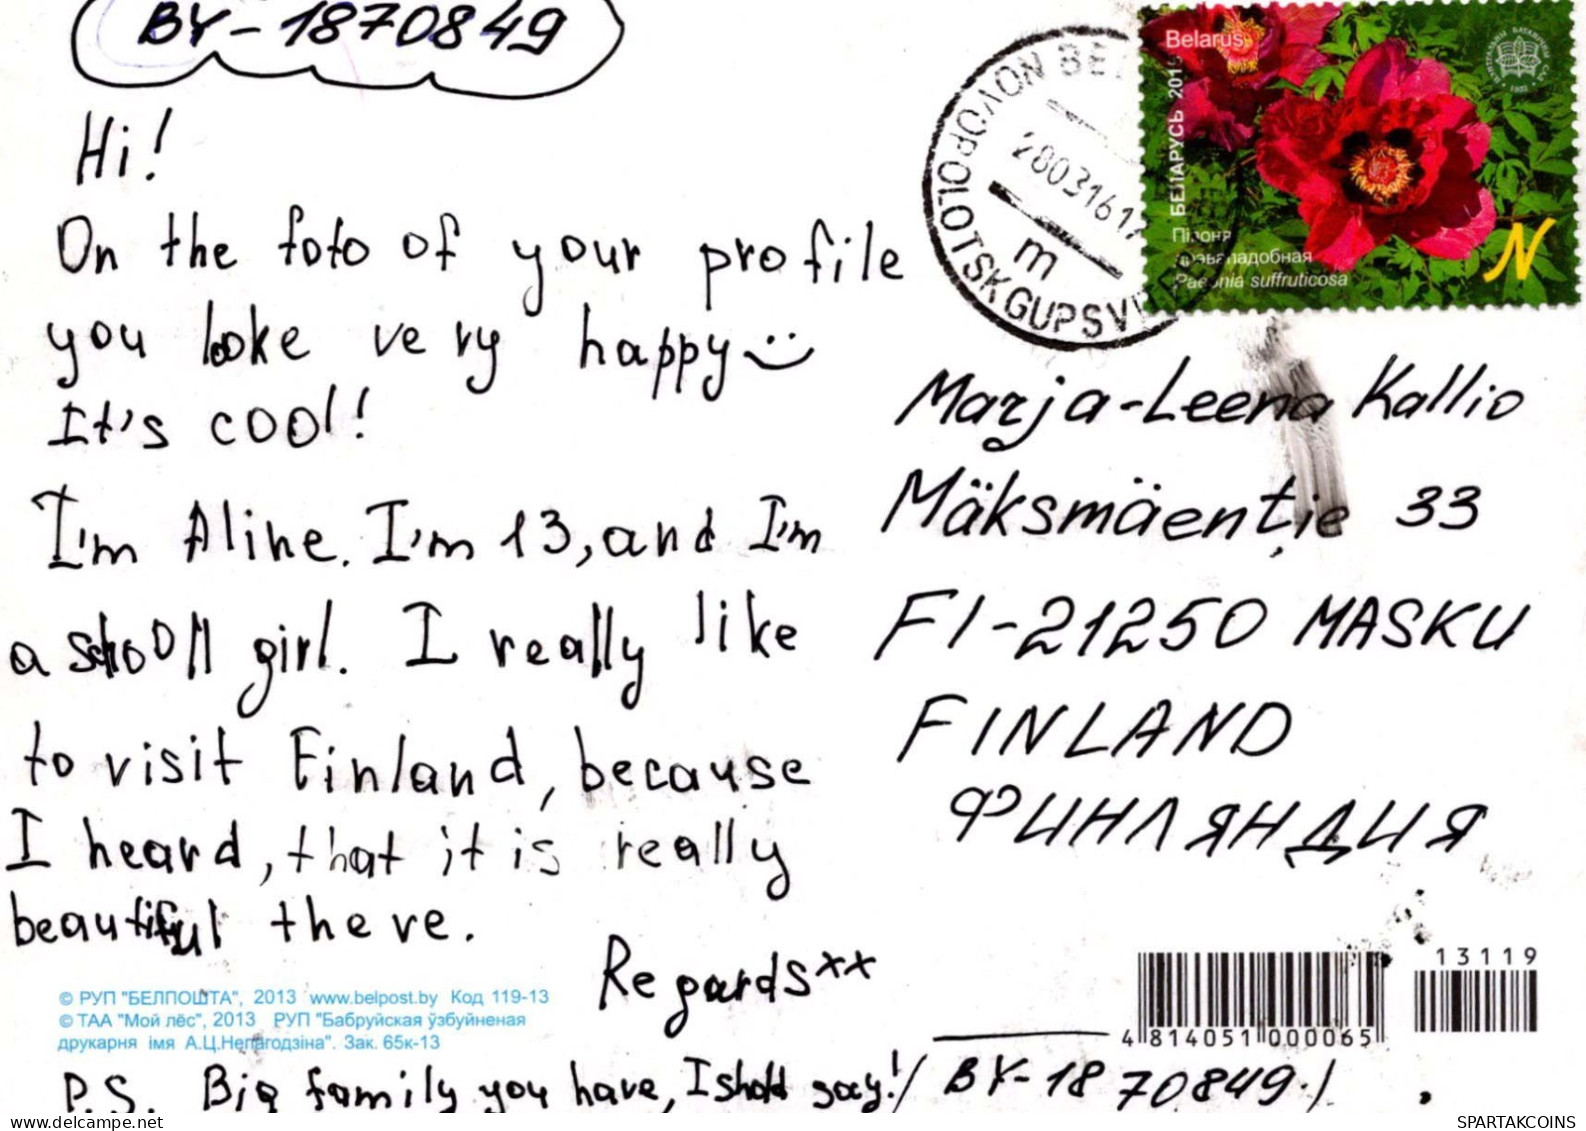 BY-1870849
Hi!
On the foto of your profile
you looke very happy
It's cool!
I'm Aline. I'm 13, and I'm
a shooll girl. I really like
to visit Finland, because
I heard, that it is really
beautiful there.
Regards xx
© РУП "БЕЛПОШТА", 2013 www.belpost.by Код 119-13
© ТАА "Мой лёс", 2013 РУП "Бабруйская ўзбуйненая
друкарня імя А.Ц.Непагодзіна". Зак. 65к-13
P.S. Big family you have, I shold say!/ BY-1870849./
NOVOPOLOTSK GUPSV
280316 17
m
Belarus
БЕЛАРУСЬ 2015
Півоня
дрэвападобная
Paeonia suffruticosa
N
Marja-Leena Kallio
Mäksmäentie 33
FI-21250 MASKU
FINLAND
ФИНЛЯНДИЯ
13119
4 814051 000065
SPARTAKCOINS
www.delcampe.net